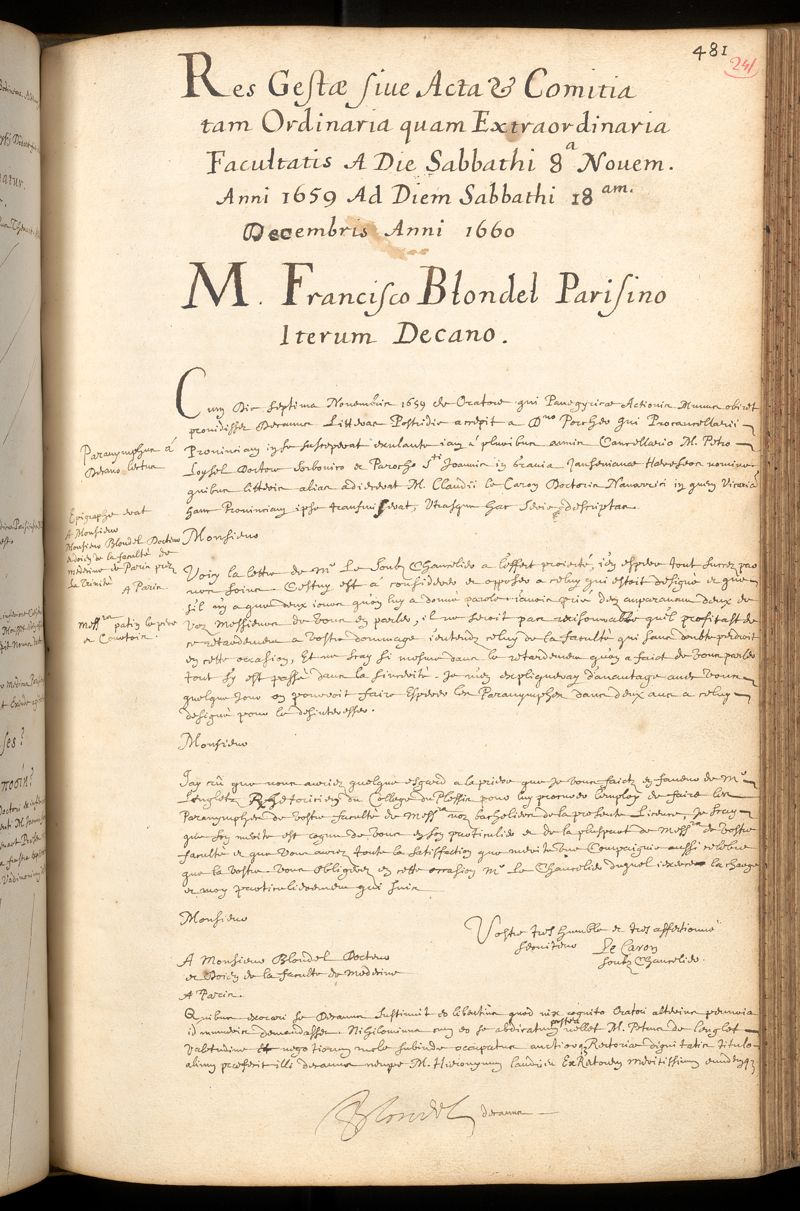 481
241
Res Gestæ siue Acta & Comitia
tam Ordinaria quam Extraordinaria
Facultatis A Die Sabbathi 8ª Nouem.
Anni 1659 Ad Diem Sabbathi 18 am.
Decembris Anni 1660
M. Francisco Blondel Parisino
Iterum Decano.
Cum Die septima Novembris 1659 de Oratore qui Panegyricæ Actionis Munus obiret
providisset Decanus Litteras Postridie accepit a Dno Porcher qui Procancellarii
Provinciam in se susceperat exulante iam a pluribus annis Cancellario M. Petro
Loysel Doctore Sorbonico et Parocho Sti Joannis in Jansenianæ Hæreseos nomine
quibus litteris alias adiecerat M. Claudii le Caron Doctoris Navarrici in quem Vicariam
hanc Provinciam ipse transfuderat, Utrasque hac serie descriptas.
Paranymphus a
Decano
Epigraphe erat
A Monsieur
Monsieur Blondel Docteur
et doien de la faculté de
medecine de Paris
la Trinité
A Paris
Messrs patin le pere
et Courtois.
Monsieur
Voicy la lettre de Mr Le Soubs Chancelier a l'effect proietté, i'en espere tout succez par
vous soins. Cestuy est à considerer et opposer a celuy qui estoit designé et que
s'il n'y a que deux iours qu'on luy a donné parole i'avois prié d'en auparavant deux de
voz Messieurs de vous en parler, il ne seroit pas raisonnable qu'il profitast de
ce retardement a vostre dommage i'entendz celuy de la faculté qui sans doubte perdroit
en cette occasion, Et ne scay si mesme dans le retardement qu'on a faict de vous parler
tout s'y est passé dans la sincerité. Je m'en expliqueray d'avantage avec vous
quelque jour on pourroit faire esperer les Paranymphes dans deux ans a celuy
designé pour le desinteresser.
Monsieur
J'ay crû que vous auriez quelque esgard a la priere que je vous faictz en faveur de Mr
Lengletz Rhetoricien du College du Plessis pour luy procurer l'employ de faire les
Paranymphes de vostre faculté de Messrs voz bacheliers de la presente Licence, Je scay
que son merite est cognu de vous en son particulier et de la pluspart de Messrs de vostre
faculté et que vous aurez toute la satisfaction que merite une Compaignie aussi celebre
que la vostre. Vous obligerez en cette occasion Mr Le Chancelier duquel i'exerce la charge
et moy particulierement qui suis
Monsieur
Vostre tres humble et tres affectionné
serviteur Le Caron
soubz Chancelier.
A Monsieur Blondel Docteur
et Doien de la faculté de Medecine
A Paris.
Quibus exorari se Decanus sustinuit eo libentius quod vix cognito Oratori alterius pervia
id muneris demandasset. Nihilominus cum eo se abdicatum postea vellet M. Petrus de Lenglet
Valetudine et negotiorum mole subinde occupatus auctiorq Rectoriæ dignitatis titulo
alium præfecit illi decanus nempe M. Hieronymum Exrectorem meritissimum
Blondel decanus